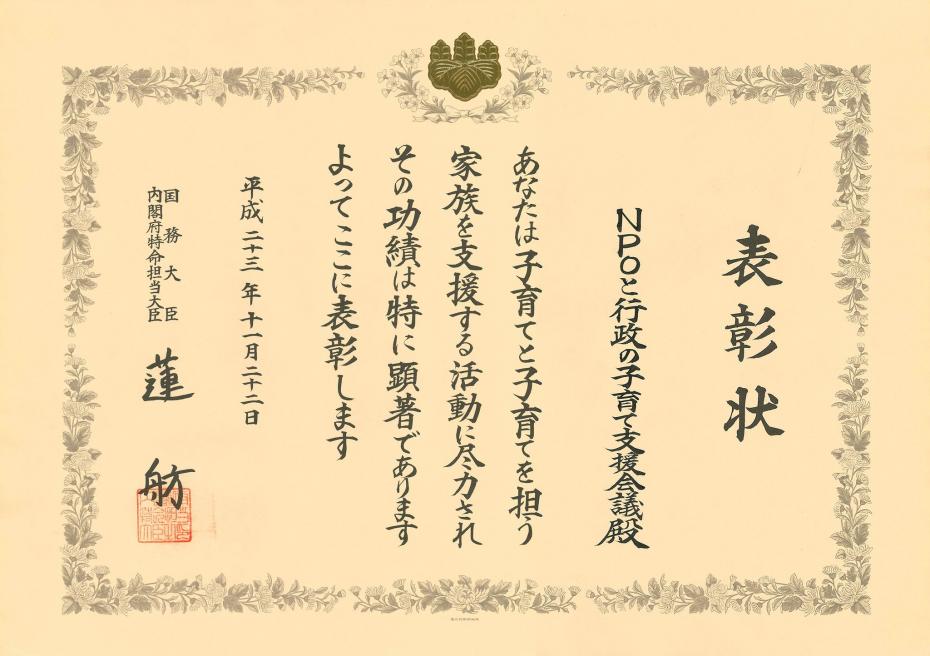 表彰状
NPOと行政の子育て支援会議殿
あなたは子育てと子育てを担う
家族を支援する活動に尽力され
その功績は特に顕著であります
よってここに表彰します
平成二十三年十一月二十二日
国務大臣
内閣府特命担当大臣
蓮舫